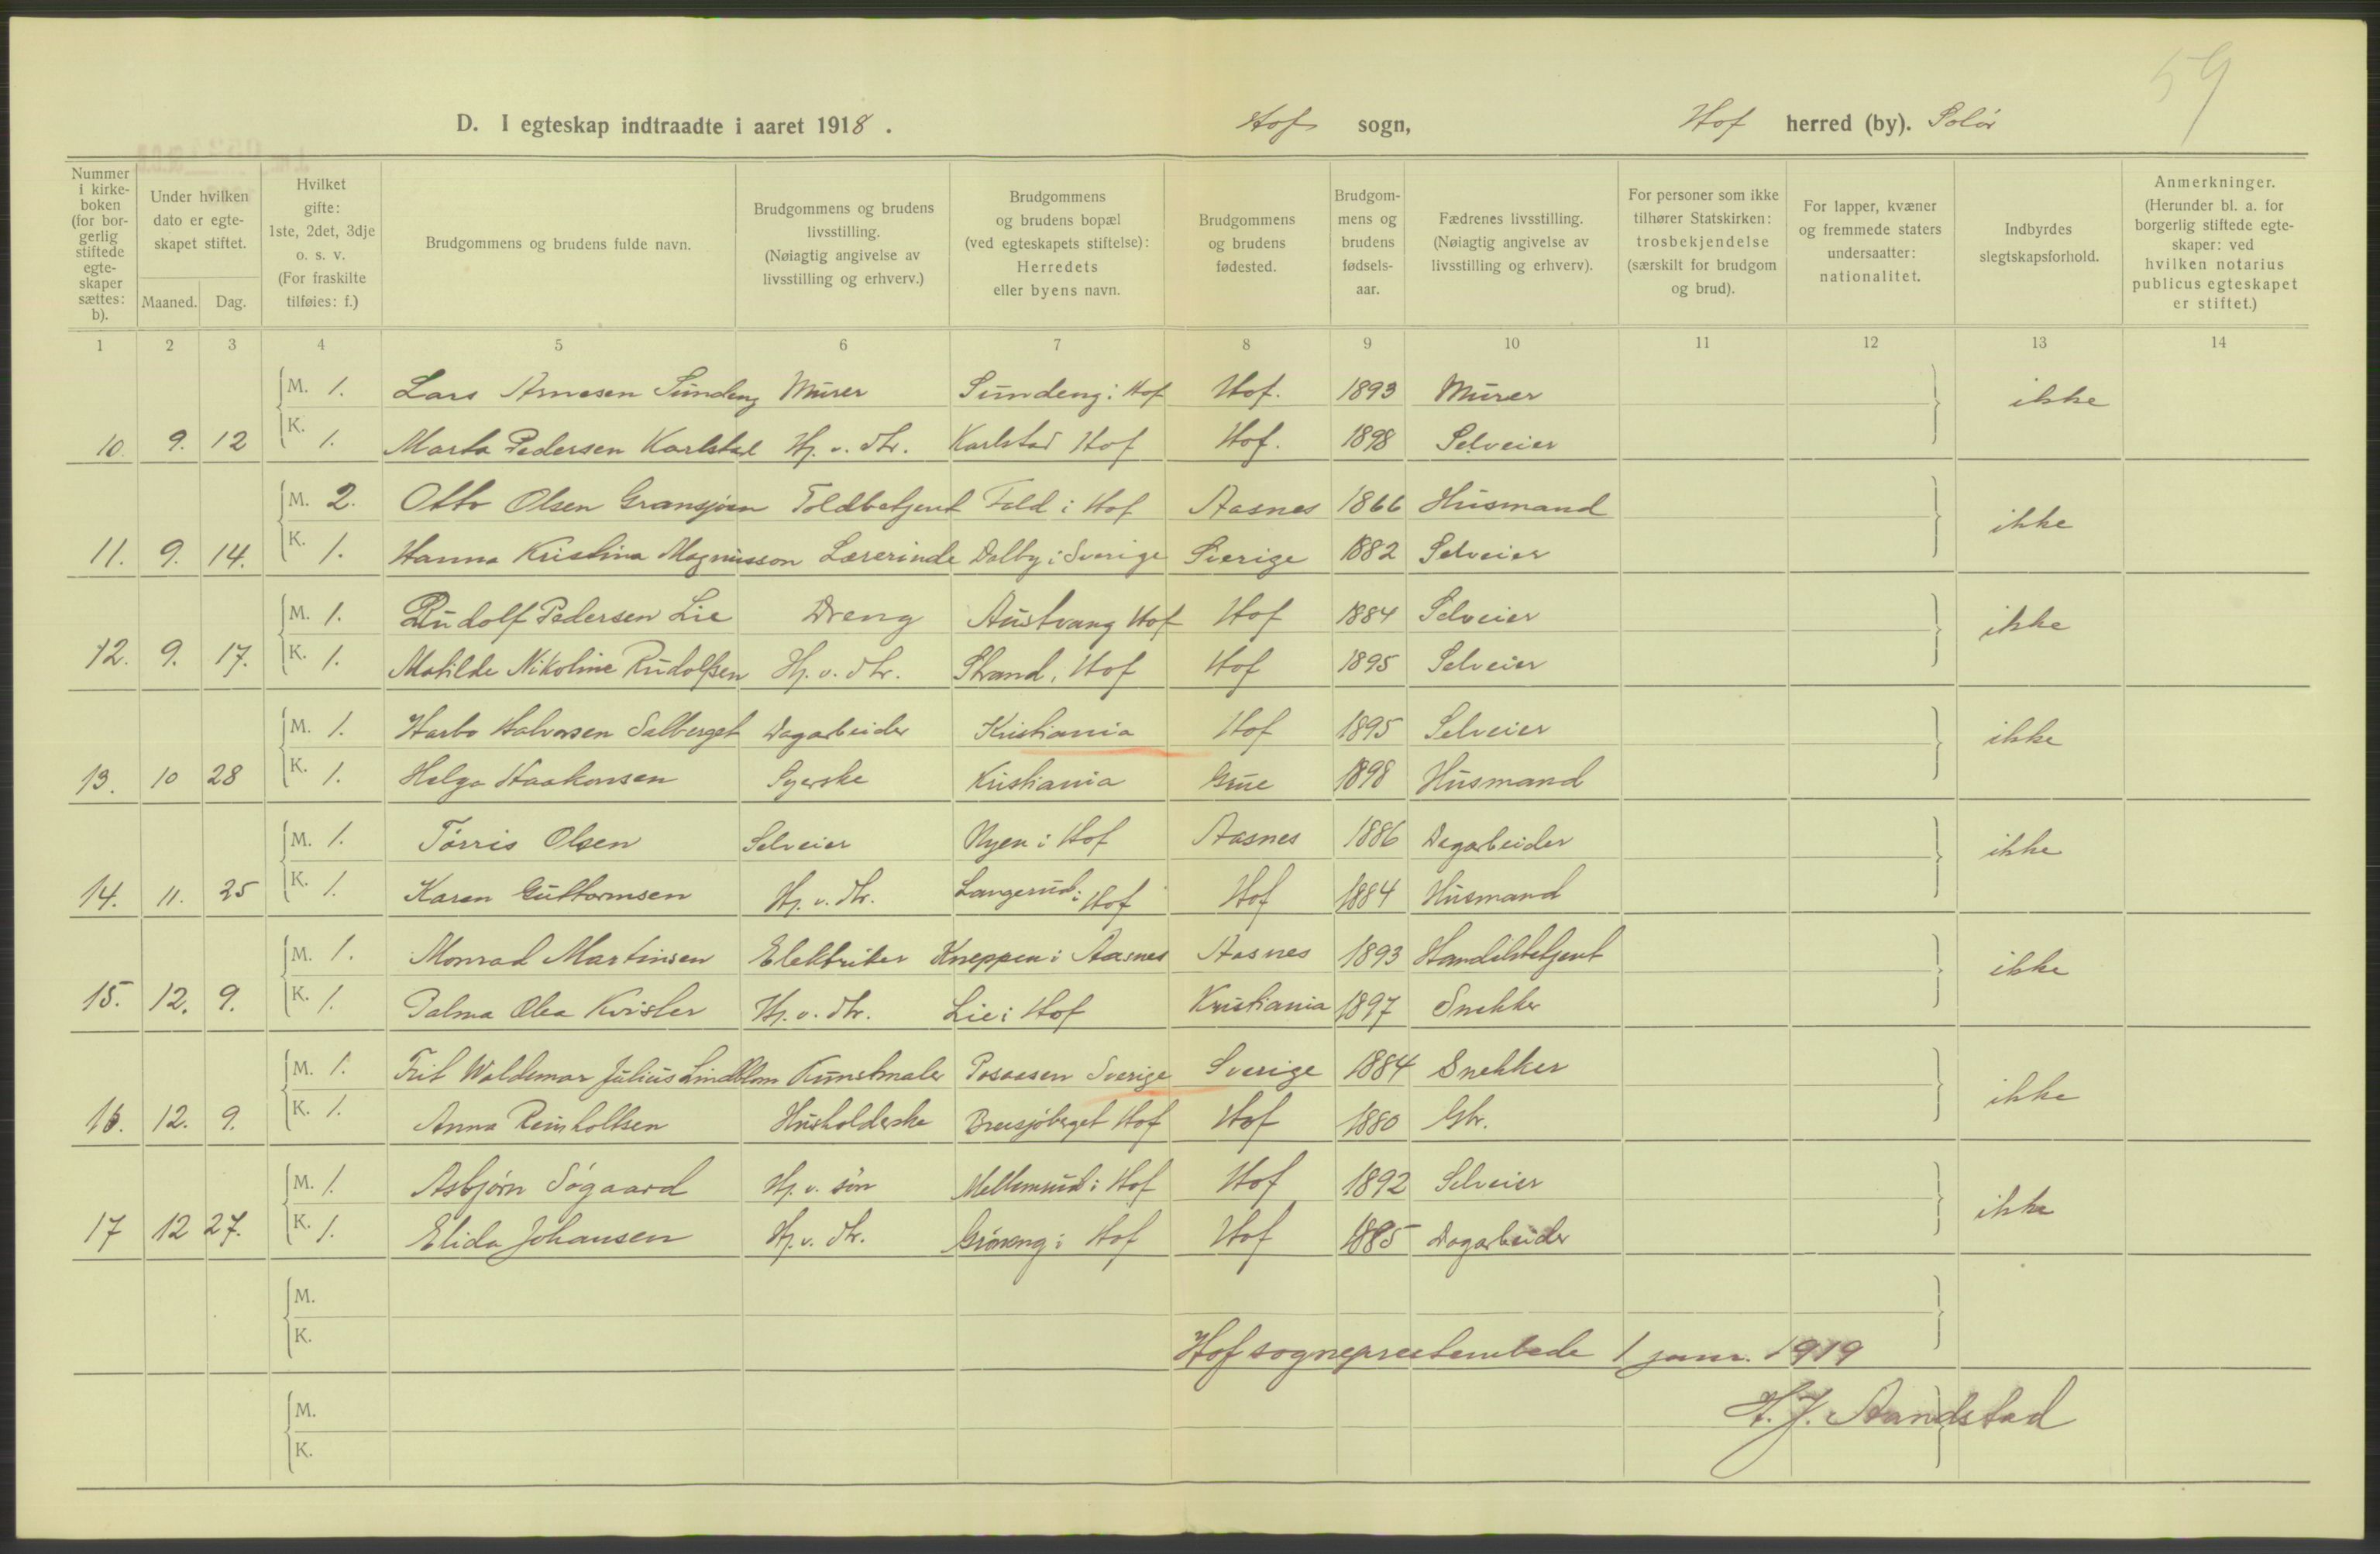 59
D. I egteskap indtraadte i aaret 1918. Hof sogn, Hof herred (by). Solør
Nummer i kirke- boken (for bor- gerlig stiftede egte- skaper sættes: b).
Under hvilken dato er egte- skapet stiftet.
Maaned. Dag.
Hvilket gifte: 1ste, 2det, 3dje o. s. v. (For fraskilte tilføies: f.)
Brudgommens og brudens fulde navn.
Brudgommens og brudens livsstilling. (Nøiagtig angivelse av livsstilling og erhverv.)
Brudgommens og brudens bopæl (ved egteskapets stiftelse): Herredets eller byens navn.
Brudgommens og brudens fødested.
Brudgom- mens og brudens fødsels- aar.
Fædrenes livsstilling. (Nøiagtig angivelse av livsstilling og erhverv).
For personer som ikke tilhører Statskirken: trosbekjendelse (særskilt for brudgom og brud).
For lapper, kvæner og fremmede staters undersaatter: nationalitet.
Indbyrdes slegtskapsforhold.
Anmerkninger. (Herunder bl. a. for borgerlig stiftede egte- skaper: ved hvilken notarius publicus egteskapet er stiftet.)
1 2 3 4 5 6 7 8 9 10 11 12 13 14
M. 1. Lars Arnesen Sundeng Murer Sundeng i Hof Hof. 1893 Murer ikke
10. 9. 12 K. 1. Marta Pedersen Karlstad Hj. v. dtr. Karlstad Hof Hof. 1898 Selveier
M. 2. Otto Olsen Gransjøen Toldbetjent Fald i Hof Aasnes 1866 Husmand ikke
11. 9. 14. K. 1. Hanna Kristina Magnusson Lærerinde Dalby i Sverige Sverige 1882 Selveier
M. 1. Rudolf Pedersen Lie Dreng Austvang Hof Hof 1884 Selveier ikke
12. 9. 17. K. 1. Matilde Nikoline Rudolfsen Hj. v. dtr. Strand, Hof Hof 1895 Selveier
M. 1. Harbo Halvorsen Salberget Dagarbeider Kristiania Hof 1895 Selveier ikke
13. 10 28 K. 1. Helga Haakonsen Syerske Kristiania Grue 1898 Husmand
M. 1. Tørris Olsen Selveier Nyen i Hof Aasnes 1886 Dagarbeider ikke
14. 11. 25 K. 1. Karen Guttormsen Hj. v. dtr. Langerud i Hof Hof 1884 Husmand
M. 1. Monrad Martinsen Elektriker Kneppen i Aasnes Aasnes 1893 Handelsbetjent ikke
15. 12. 9. K. 1. Palma Olea Kvisler Hj. v. dtr. Lie i Hof Kristiania 1897 Snekker
M. 1. Frit Waldemar Julius Lindblom Kunstmaler Posaasen Sverige Sverige 1884 Snekker ikke
16. 12. 9. K. 1. Anna Reinholtsen Husholderske Breisjøberget Hof Hof 1880 Gbr.
M. 1. Asbjørn Søgaard Hj. v. søn Mellemrud i Hof Hof 1892 Selveier ikke
17 12 27. K. 1. Elida Johansen Hj. v. dtr. Grøneng i Hof Hof 1885 Dagarbeider
M.
K.
Hof sogneprestembede 1 janr. 1919
M.
H. J. Aandstad
K.